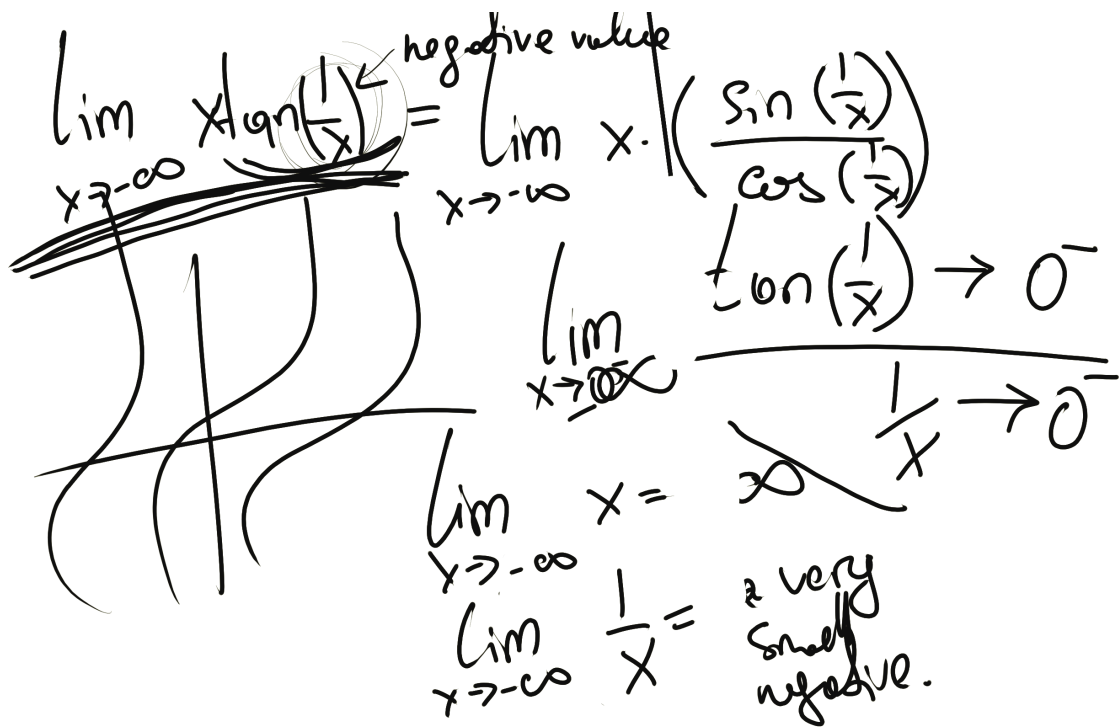 negative value
lim x→-∞ x tan(1/x) = lim x→-∞ x · (sin(1/x)/cos(1/x))
lim x→-∞ tan(1/x) → 0⁻ / 1/x → 0⁻
lim x→-∞ x = ∞
lim x→-∞ 1/x = a very
small
negative.